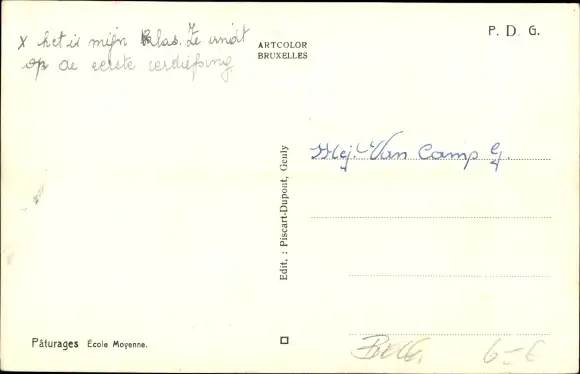 x het is mijn klas. Ze vindt
op de eerste verdieping
ARTCOLOR
BRUXELLES
P. D. G.
Mej. Van Camp G.
Edit. : Piscart-Dupont, Genly
Pâturages École Moyenne.
6-€